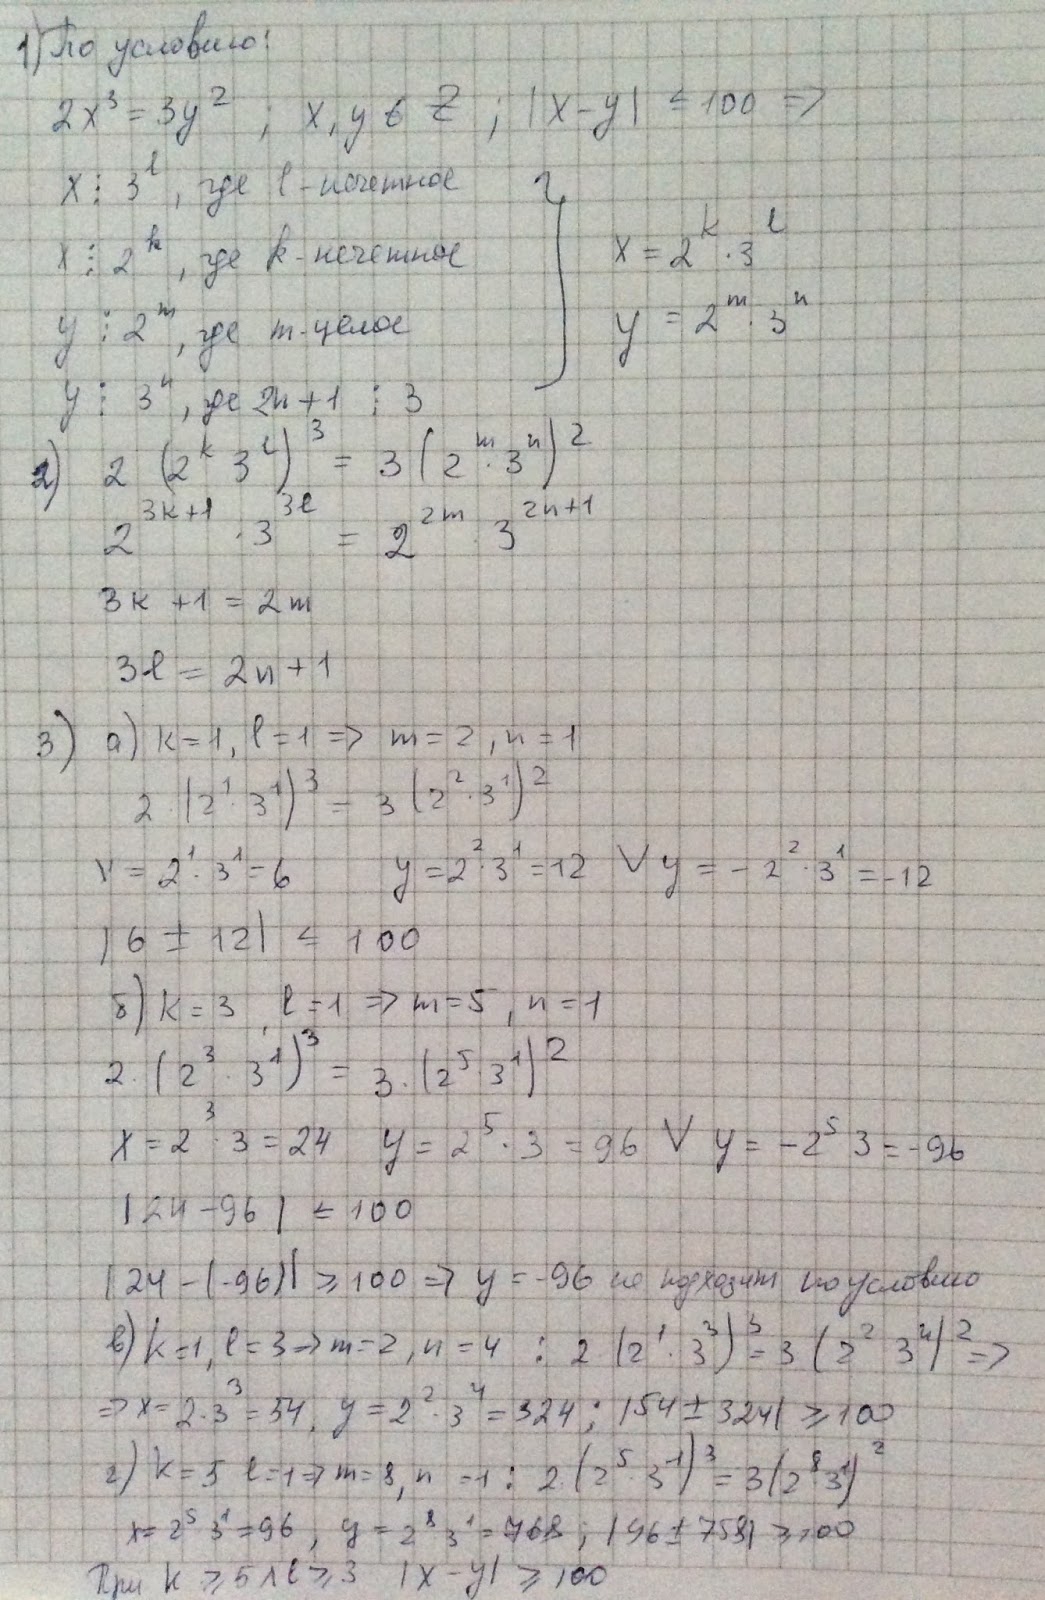 1) По условию:
2x³ = 3y² ; x, y ∈ Z ; |x-y| ≤ 100 =>
x ⋮ 3^l, где l - нечетное
x ⋮ 2^k, где k - нечетное
x = 2^k · 3^l
y ⋮ 2^m, где m - целое
y = 2^m · 3^n
y ⋮ 3^n, где 2n+1 ⋮ 3
2) 2 (2^k 3^l)³ = 3 (2^m · 3^n)²
2^(3k+1) · 3^(3l) = 2^(2m) · 3^(2n+1)
3k + 1 = 2m
3l = 2n + 1
3) а) k=1, l=1 => m=2, n=1
2 · (2¹ · 3¹)³ = 3 (2² · 3¹)²
x = 2¹ · 3¹ = 6 y = 2² · 3¹ = 12 ∨ y = -2² · 3¹ = -12
|6 ± 12| ≤ 100
б) k=3, l=1 => m=5, n=1
2 · (2³ · 3¹)³ = 3 · (2⁵ · 3¹)²
x = 2³ · 3 = 24 y = 2⁵ · 3 = 96 ∨ y = -2⁵ 3 = -96
|24 - 96| ≤ 100
|24 - (-96)| ⩾ 100 => y = -96 не подходит по условию
в) k=1, l=3 => m=2, n=4 : 2 (2¹ · 3³)³ = 3 (2² 3⁴)² =>
=> x = 2 · 3³ = 54, y = 2² · 3⁴ = 324 ; |54 ± 324| ⩾ 100
г) k=5 l=1 => m=8, n=1 : 2 · (2⁵ · 3¹)³ = 3 (2⁸ 3¹)²
x = 2⁵ 3¹ = 96, y = 2⁸ 3¹ = 768 ; |96 ± 758| ⩾ 100
При k ⩾ 5 ∧ l ⩾ 3 |x-y| ⩾ 100